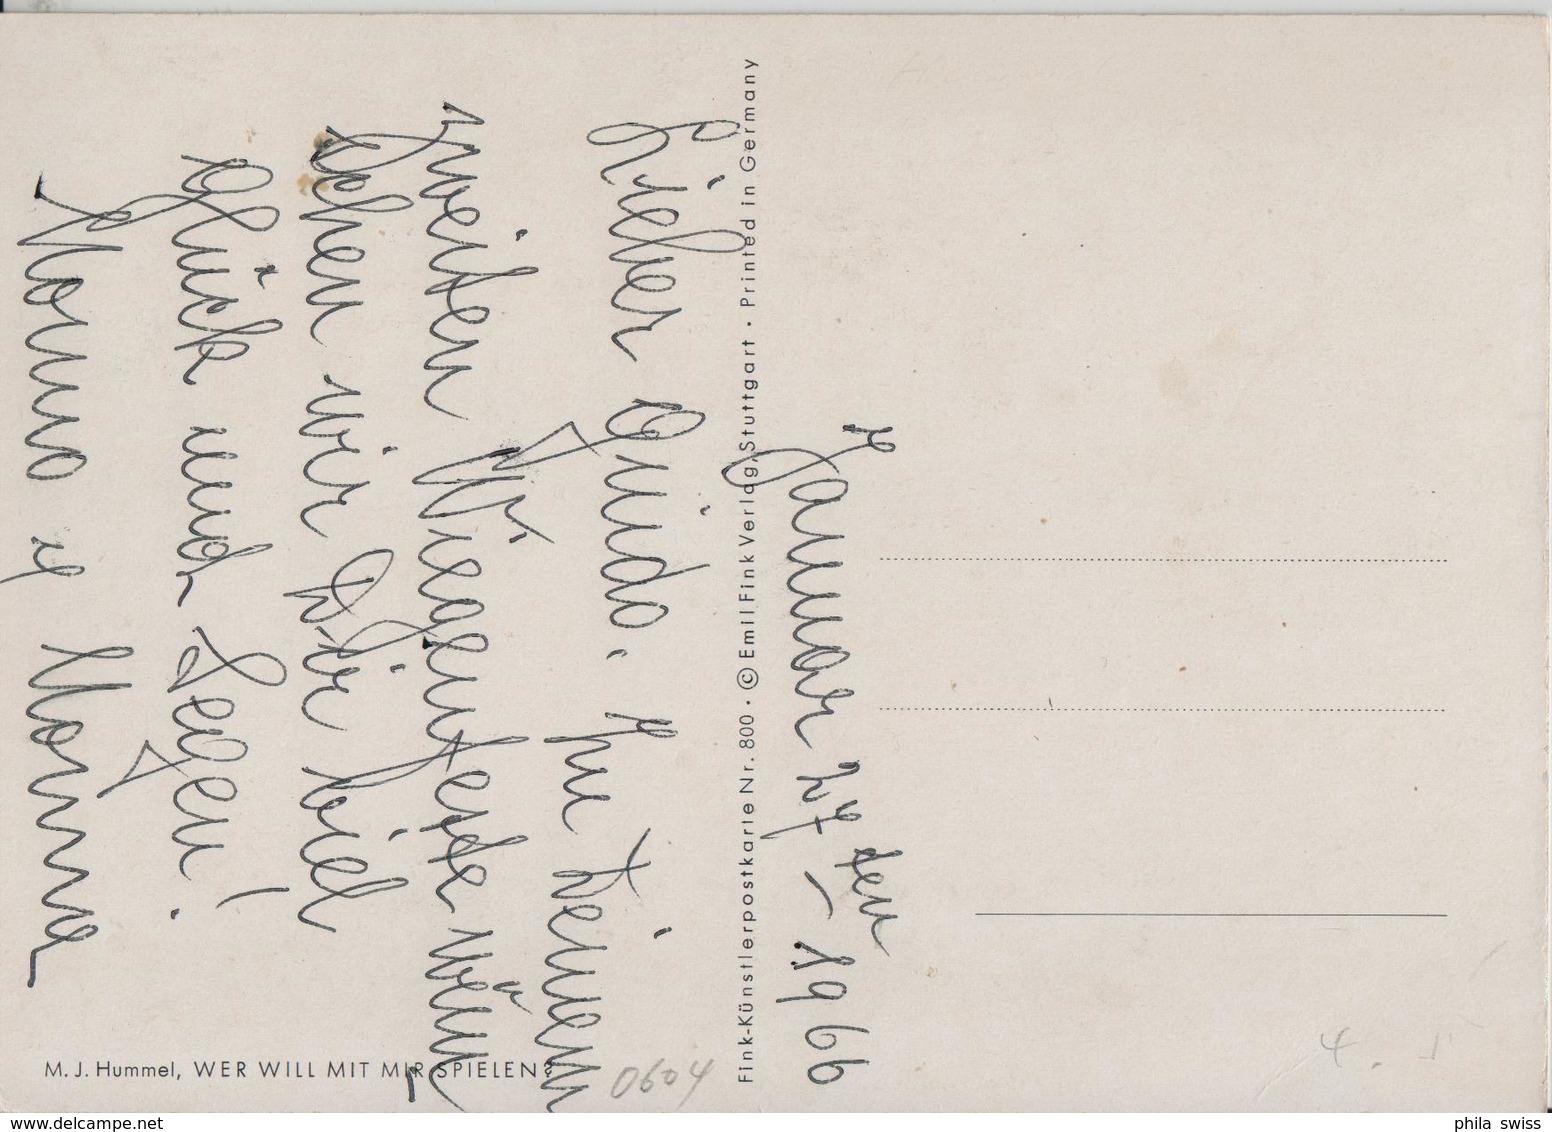 Januar 27ten – 1966
Lieber Guido. Zu Deinem
zweiten Wiegenfeste wün
schen wir Dir viel
Glück und Segen!
M. J. Hummel, WER WILL MIT MIR SPIELEN?
Fink-Künstlerpostkarte Nr. 800 · © Emil Fink Verlag, Stuttgart · Printed in Germany
0604
phila swiss